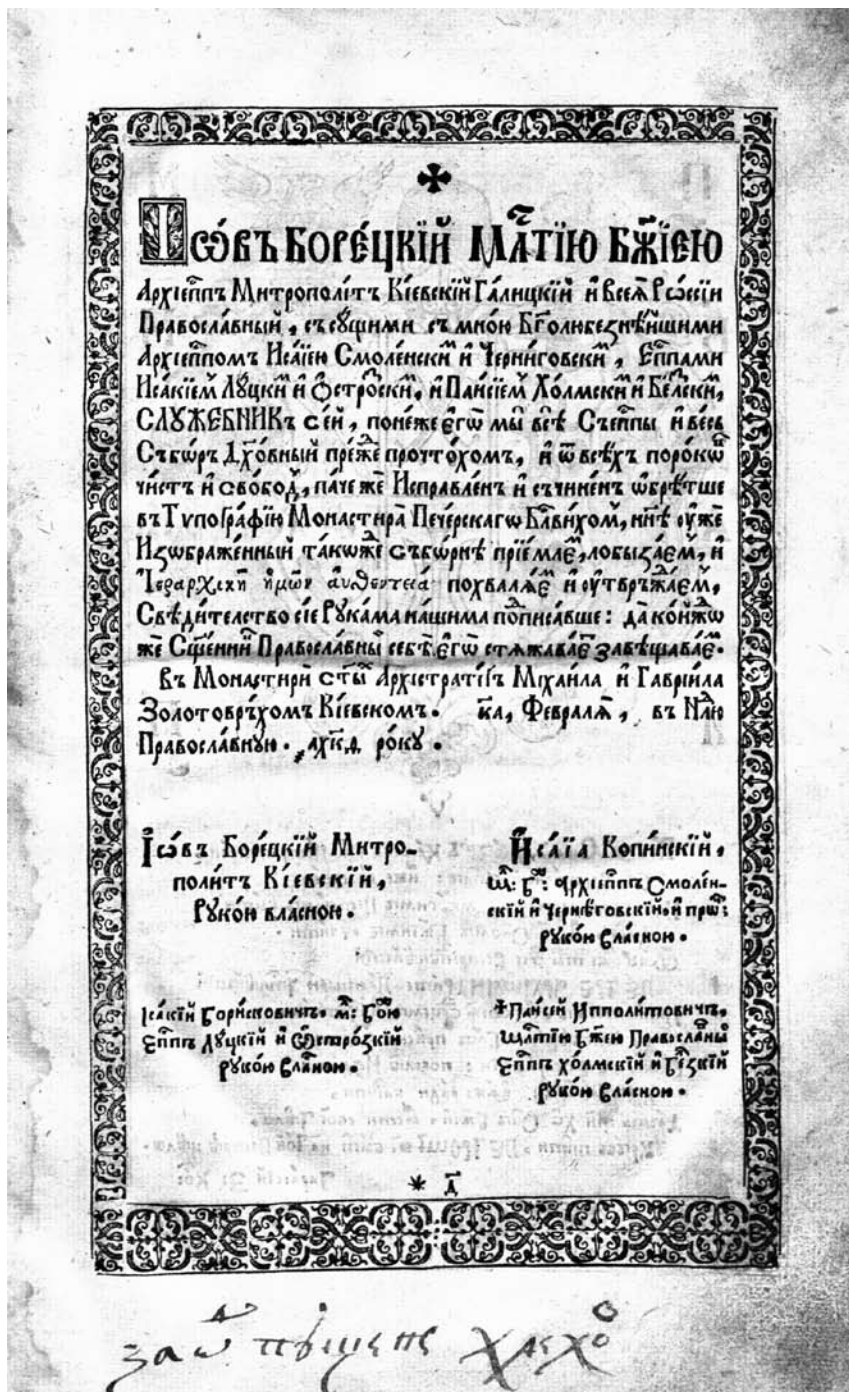 Іѡ́въ Боре́цкїй Мл҃тїю Бж҃їею
Архїеп҃пъ Митрополи́тъ Кі́евскїй Га́лицкїй и҆ Всеѧ̀ Рѡссі́и
Православный, съ сꙋ́щими съ мно́ю Бг҃олюбезнѣ́йшими
Архїеп҃помъ Иса́їею Смоле́нскиⷨ и҆ Черни́говскиⷨ, Еп҃пами
Иса́кїемⷨ Лꙋ́цкиⷨ и҆ Ѻстро́скиⷨ, и҆ Паи́сїемⷨ Хо́лмскиⷨ и҆ Бе́лскиⷨ,
СЛꙊЖЕБНИКъ се́й, поне́же є҆гѡ̀ мы̀ всѣ̀ Съеп҃пы и҆ ве́сь
Събѡ́ръ Дх҃о́вный пре́жⷣе прочто́хомъ, и҆ ѿ всѣ́хъ поро́кѡⷡ
чи́стъ и҆ свобо́дⷣ, па́че же Исправле́н и҆ съчине́н ѡ҆брѣ́тше
въ Тѵпогра́фїю Монастира̀ Пече́рскагѡ Бл҃ви́хомⷨ, нн҃ѣ ᲂу҆же
Изѡбраже́нный та́кѡже събо́рнѣ прїе́млеⷨ, лобыза́еⷨ, и҆
Ἱεραρχικῇ ἡμῶν αὐθεντείᾳ похвалѧ́еⷨ и҆ ᲂу҆твръжа́еⷨ,
Свѣди́телство сїе Рꙋка́ма на́шима поⷣписа́вше: да̀ ко́йжⷣѡ
же Сщ҃е́нниⷦ҇ Правосла́вныⷯ себѣ̀ є҆гѡ̀ стѧжава́еⷮ завѣщава́еⷨ.
Въ Монастирѝ ст҃ыⷯ Архїстрати́гъ Мїхаи́ла и҆ Гаврїи́ла
Золотовръ́хомъ Кі́евскомъ. к҃а, Феврала̀, въ Нⷣлю
Правосла́внꙋю. ҂ахк҃д ро́кꙋ.
Іѡ́въ Боре́цкїй Митро-
поли́тъ Кі́евскїй,
Рꙋко́ю вла́сною.
Иса́їа Копи́нскїй,
м҃: Бⷤ: Архїеп҃пъ Смоле́н-
скїй и҆ Черни́говскїй. и҆ прѡⷱ:
рꙋко́ю вла́сною.
Іса́кїй Бори́сковичъ. м҃: Бⷤо́ю
Еп҃пъ Лꙋ́цкїй и҆ Ѻстро́зкїй
рꙋко́ю вла́сною.
✝Паи́сїй Ипполи́товичъ,
Мл҃тїю Бж҃ею Правосла́вныⷨ
Еп҃пъ Хо́лмскїй и҆ Бе́лзкїй
рꙋко́ю вла́сною.
* д҃